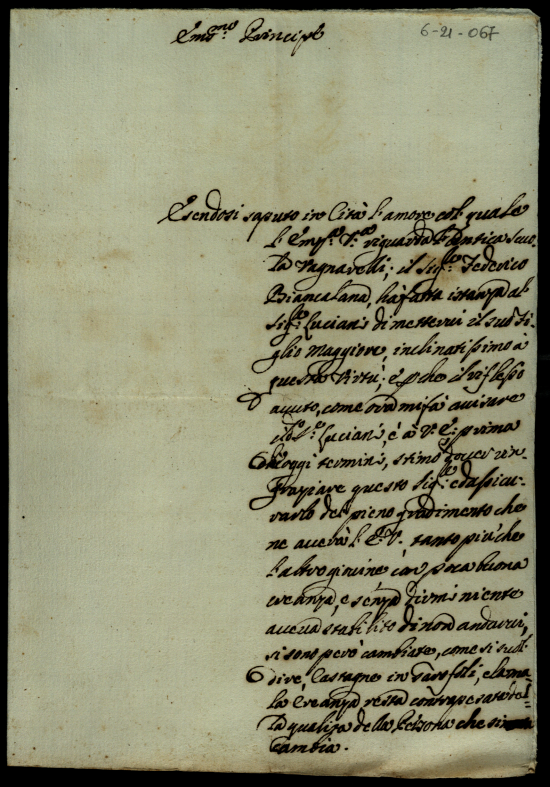 6-21-067
Em:mo Principe
Essendosi saputo in Città l'amore col quale
l'Em: V:ra riguarda l'Antica scuo-
la Vagnarelli; il Sig:re Federico
Biancalana, hà fatta istanza al
Sig:re Luciani di mettervi il suo fi-
glio Maggiore, inclinatissimo à
questa Virtù; e p che il riflesso
avuto, come ora mi fà avisare
Luciani, è à V: E: prima
oggi termini, stimo dover rin-
fraziare questo Sig:re ed assicu-
rarlo del pieno gradimento che
ne averà l' E: V: tanto più che
l'altre giovine con poca buona
creanza, e senza dirmi niente
aveva stabilito di non andarvi,
si sono però cambiate, come si suol
dire Castagne in Garofoli, e la ma-
la Creanza resta contrapesata del-
la qualità della Persona che si
Cambia.